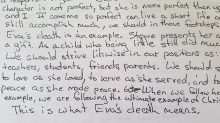 character is not perfect, but she is more perfect than you
and I. Someone so perfect can live a short life and
still accomplish much, we should in those footsteps.
Eva's death is an example. Stowe presents her as
a gift. As a child who being little still did much.
We should strive likewise in our positions as
teachers, students, friends, parents. We should
to love as she loved, to serve as she served, and to
peace as she made peace. When we follow
example, we are following the ultimate example of
This is what Eva's death means.